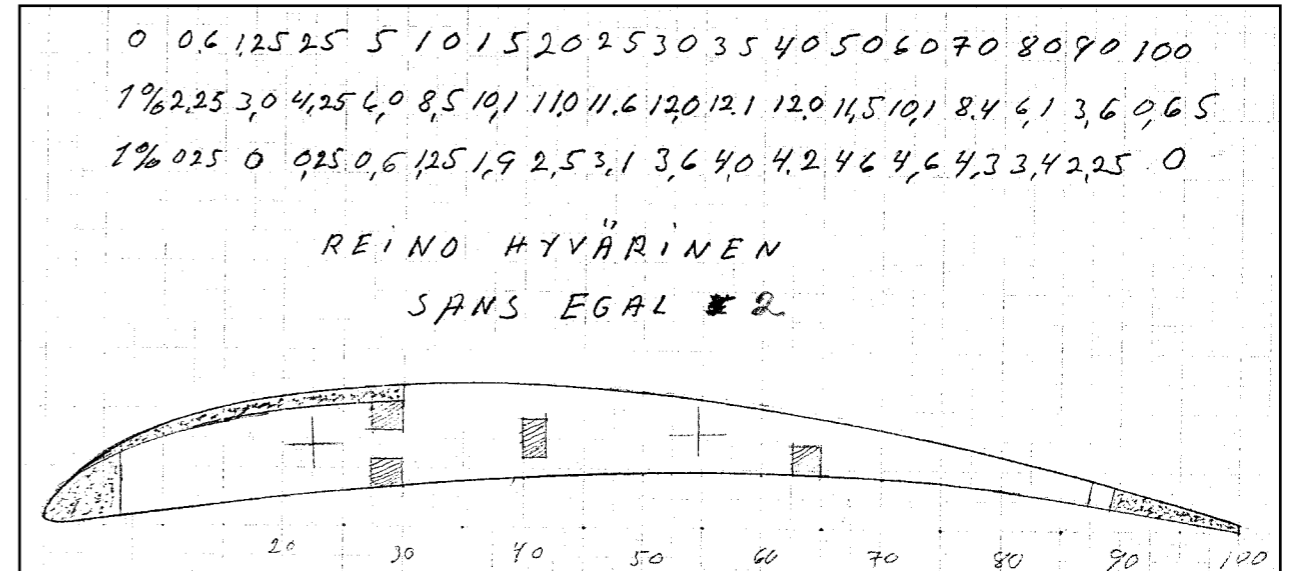 0 0.6 1,25 2 5 5 10 15 20 25 30 35 40 50 60 70 80 90 100
1% 2.25 3,0 4,25 6,0 8,5 10,1 11,0 11.6 12,0 12.1 12.0 11,5 10,1 8.4 6,1 3,6 0,65
1% 025 0 0,25 0,6 1,25 1,9 2,5 3,1 3,6 4,0 4.2 4 6 4,6 4,3 3,4 2,25 0
REINO HYVÄRINEN
SANS EGAL 2
20 30 40 50 60 70 80 90 100